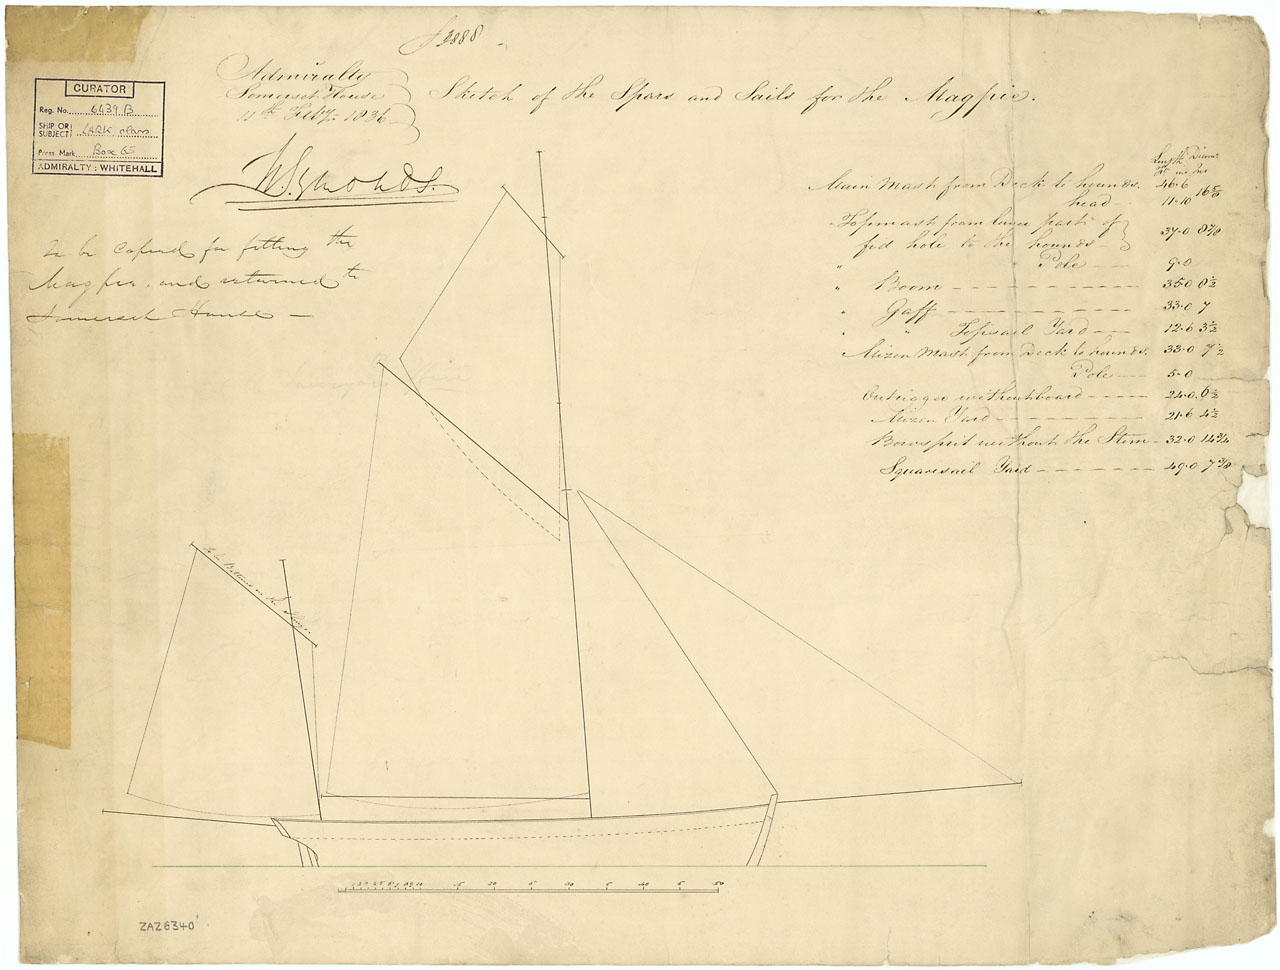 3888
Admiralty
Somerset House
11th Feby. 1836
Sketch of the Spars and Sails for the Magpie.
CURATOR
Reg. No. 6439.B
SHIP OR SUBJECT LARK class
Press Mark Box 65
ADMIRALTY: WHITEHALL
W Symonds.
To be Copied for fitting the
Magpie, and returned to
Somerset House —
Length Diamr
Ft ins Ins
Main Mast from Deck to hounds. 46.6
head 11.10
Topmast from lower part of
fid hole to the hounds 37.0 8 7/8
" Pole 9.0
" Boom 35.0 8 1/2
" Gaff 33.0 7
" " Topsail Yard 12.6 3 1/2
Mizon Mast from Deck to hounds. 33.0 7 1/2
Pole 5.0
Outrigger without board 24.0 6 1/2
Mizon Yard 21.6 4 1/2
Bowsprit without the Stem 32.0 14 3/4
Squaresail Yard 49.0 7 3/8
to be in the
ZAZ6340